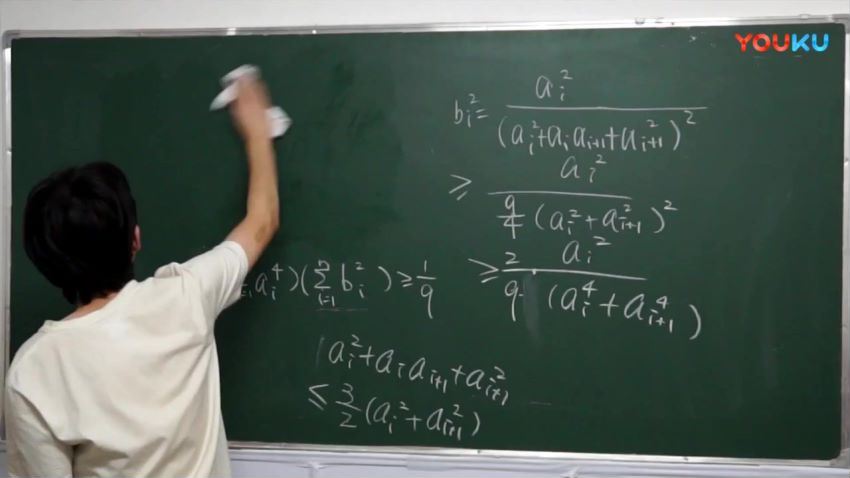 YOUKU
b_i^2 = \frac{a_i^2}{(a_i^2+a_i a_{i+1}+a_{i+1}^2)^2}
≥ \frac{a_i^2}{\frac{9}{4}(a_i^2+a_{i+1}^2)^2}
≥ \frac{2}{9} \frac{a_i^2}{(a_i^4+a_{i+1}^4)}
a_i^4)(\sum_{i=1}^{n} b_i^2) ≥ \frac{1}{9}
a_i^2+a_i a_{i+1}+a_{i+1}^2
≤ \frac{3}{2}(a_i^2+a_{i+1}^2)